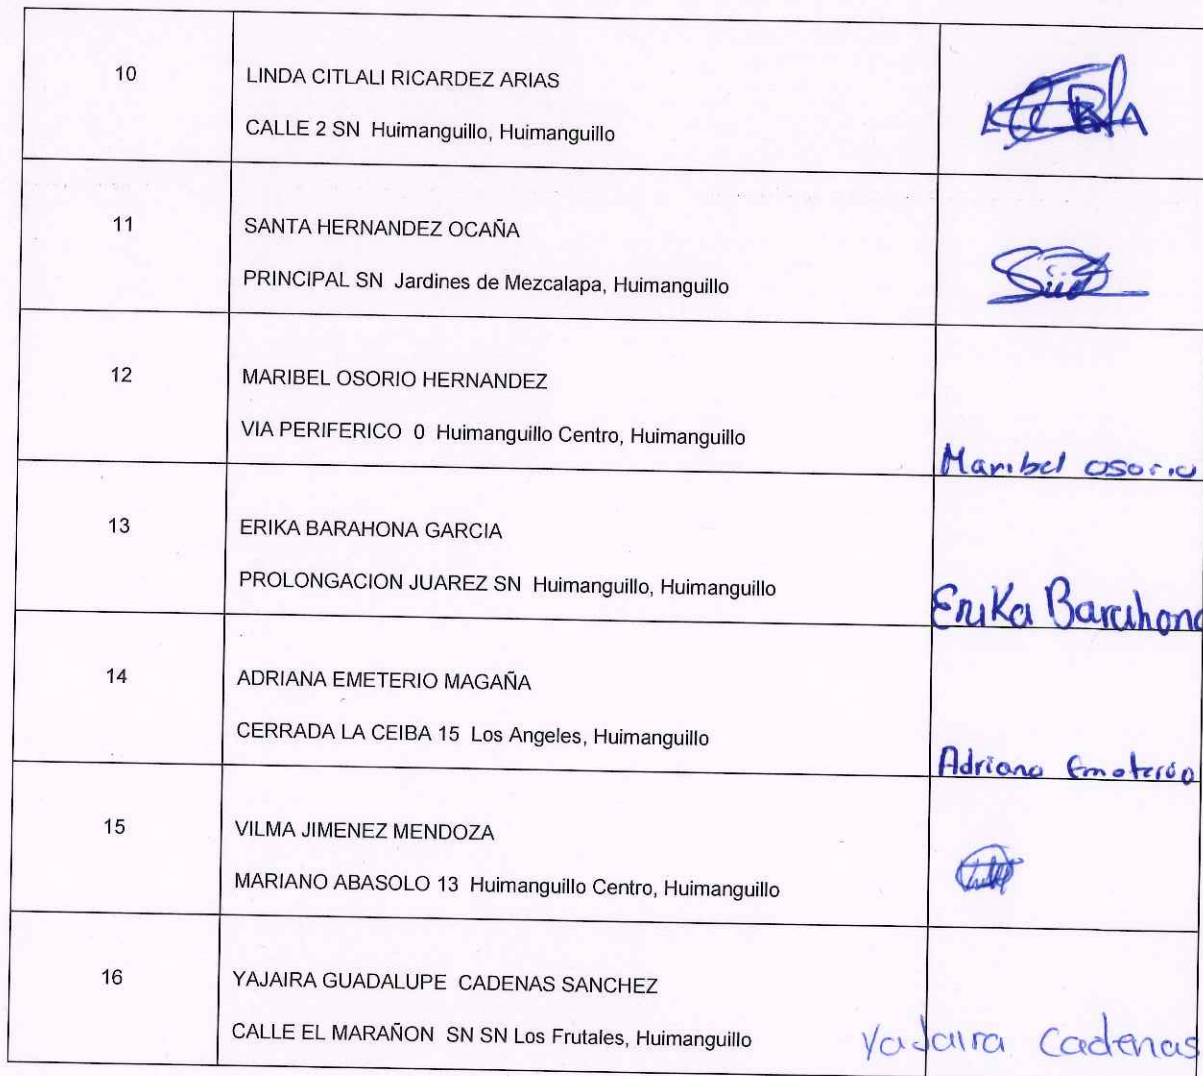 10
LINDA CITLALI RICARDEZ ARIAS
CALLE 2 SN Huimanguillo, Huimanguillo
11
SANTA HERNANDEZ OCAÑA
PRINCIPAL SN Jardines de Mezcalapa, Huimanguillo
12
MARIBEL OSORIO HERNANDEZ
VIA PERIFERICO 0 Huimanguillo Centro, Huimanguillo
Maribel osorio
13
ERIKA BARAHONA GARCIA
PROLONGACION JUAREZ SN Huimanguillo, Huimanguillo
Erika Barahona
14
ADRIANA EMETERIO MAGAÑA
CERRADA LA CEIBA 15 Los Angeles, Huimanguillo
Adriana Emeterio
15
VILMA JIMENEZ MENDOZA
MARIANO ABASOLO 13 Huimanguillo Centro, Huimanguillo
16
YAJAIRA GUADALUPE CADENAS SANCHEZ
CALLE EL MARAÑON SN SN Los Frutales, Huimanguillo
Yajaira Cadenas